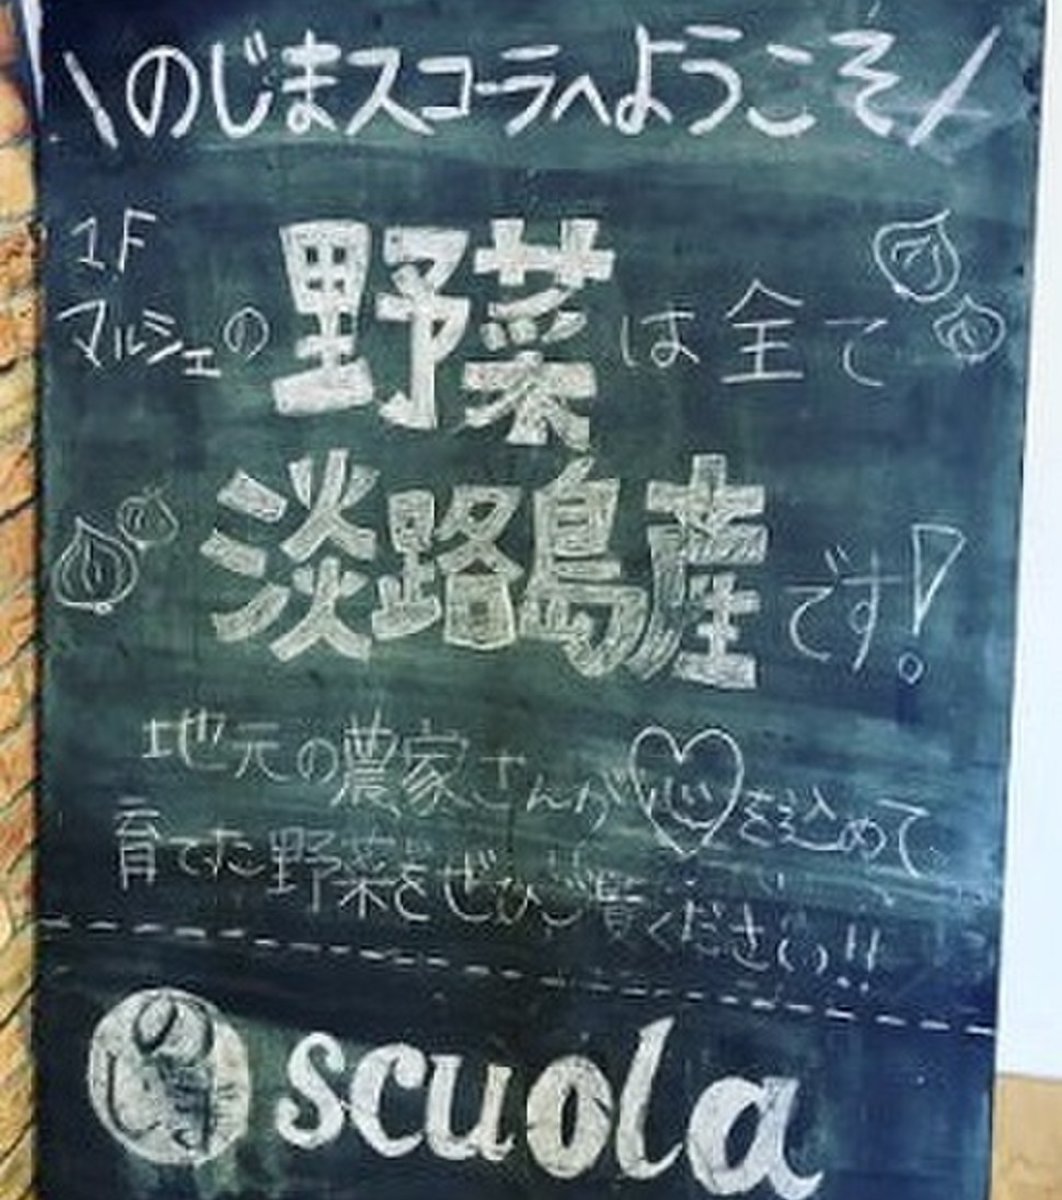 \のじまスコーラへようこそ/
1F
マルシェの野菜は全て
淡路島産です!
地元の農家さんが心を込めて
育てた野菜をぜひご覧ください!!
scuola